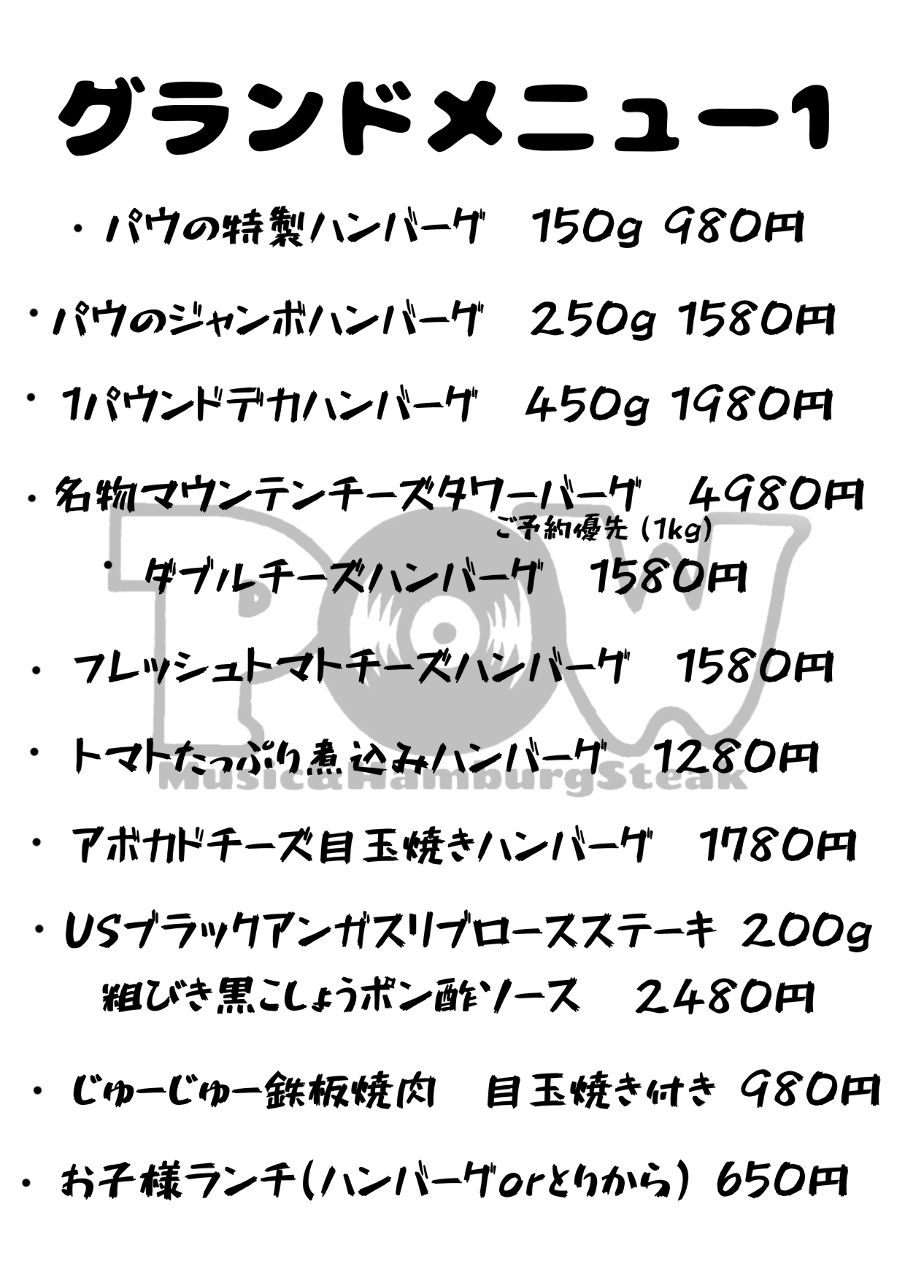 グランドメニュー1
・パウの特製ハンバーグ　150g 980円
・パウのジャンボハンバーグ　250g 1580円
・1パウンドデカハンバーグ　450g 1980円
・名物マウンテンチーズタワーバーグ　4980円
ご予約優先 (1kg)
・ダブルチーズハンバーグ　1580円
POW
・フレッシュトマトチーズハンバーグ　1580円
・トマトたっぷり煮込みハンバーグ　1280円
Music&HamburgSteak
・アボカドチーズ目玉焼きハンバーグ　1780円
・USブラックアンガスリブロースステーキ 200g
粗びき黒こしょうポン酢ソース　2480円
・じゅーじゅー鉄板焼肉　目玉焼き付き 980円
・お子様ランチ(ハンバーグorとりから) 650円